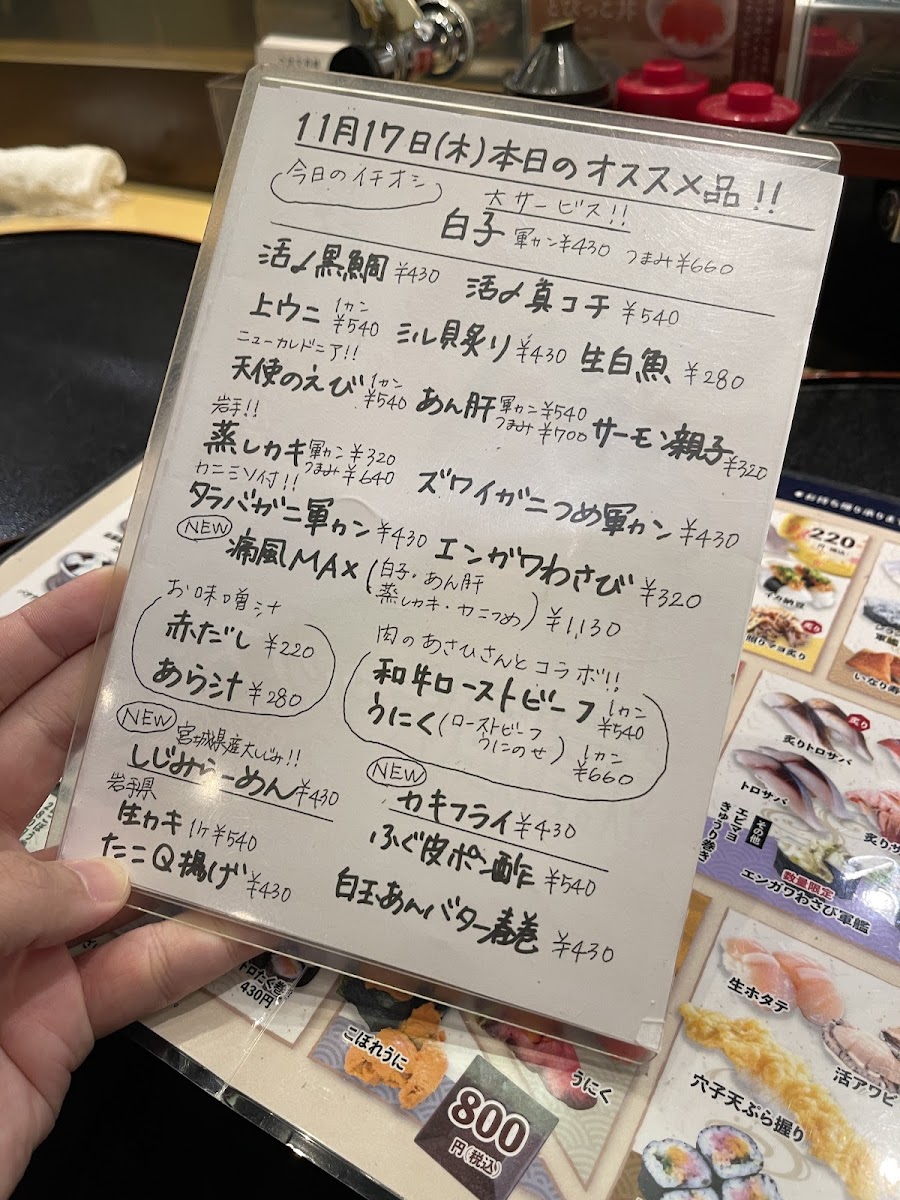 11月17日(木)本日のオススメ品!!
今日のイチオシ
大サービス!!
白子 軍カン¥430 つまみ¥660
活〆黒鯛 ¥430
活〆真コチ ¥540
上ウニ 1カン ¥540
ミル貝炙り ¥430
生白魚 ¥280
ニューカレドニア!!
天使のえび 1カン ¥540
あん肝 軍カン ¥540 つまみ ¥700
サーモン親子 ¥320
岩手!!
蒸しカキ 軍カン ¥320 つまみ ¥640
ズワイガニつめ軍カン ¥430
カニミソ付!!
タラバガニ軍カン ¥430
エンガワわさび ¥320
NEW
痛風MAX (白子・あん肝
蒸しカキ・カニつめ) ¥1,130
お味噌汁
赤だし ¥220
あら汁 ¥280
肉のあさひさんとコラボ!!
和牛ローストビーフ 1カン ¥540
うにく (ローストビーフ
うにのせ) 1カン ¥660
NEW
宮城県産大しじみ!!
しじみらーめん ¥430
NEW
カキフライ ¥430
岩手県
生カキ 1ケ ¥540
ふぐ皮ポン酢 ¥540
たこQ揚げ ¥430
白玉あんバター春巻 ¥430
220
イカ納豆
炙り
いなり寿
炙り
炙りトロサバ
トロサバ
その他
エビマヨ
きゅうり巻き
数量限定
エンガワわさび軍艦
生ホタテ
活アワビ
穴子天ぷら握り
トロたく巻
430円
こぼれうに
うにく
800
円(税込)